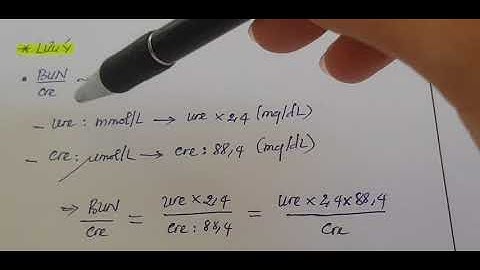 * LƯU Ý
• BUN/Cre ~
- ure : mmol/L → ure × 2,4 (mg/dL)
- cre : µmol/L → cre : 88,4 (mg/dL)
⇒ BUN/Cre = ure × 2,4/Cre : 88,4 = ure × 2,4 × 88,4/Cre